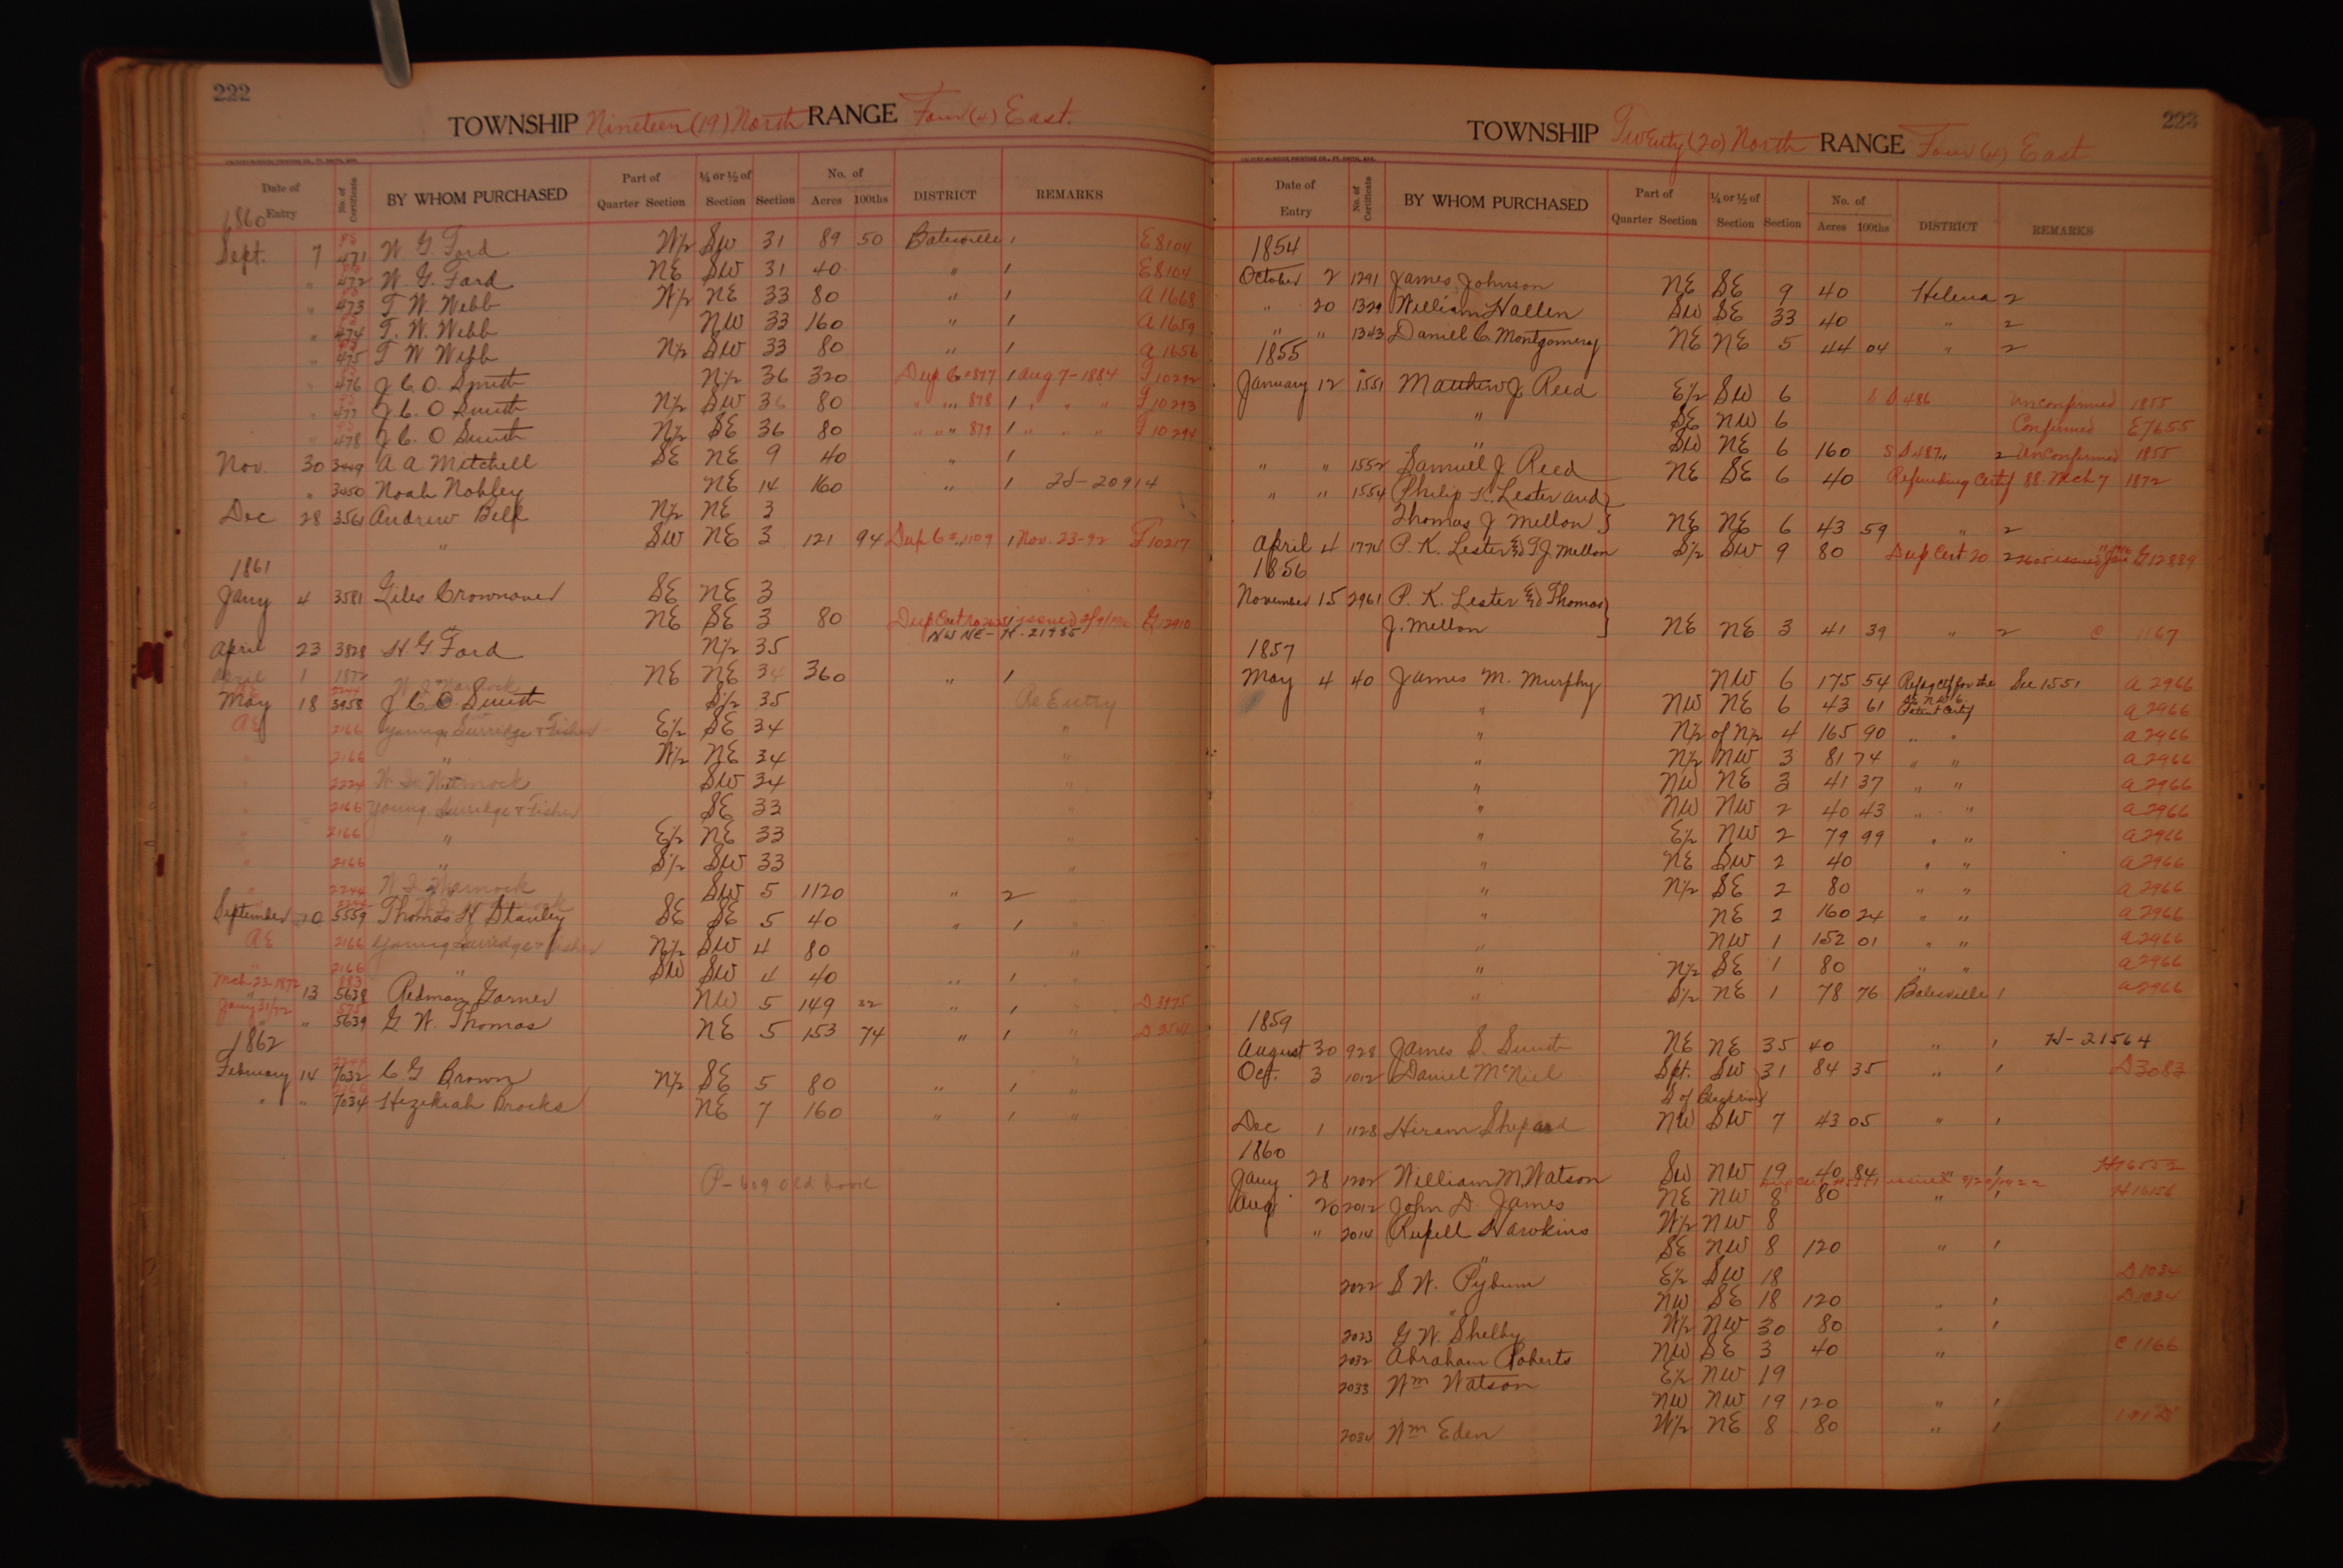 222
TOWNSHIP Nineteen (19) North RANGE Four (4) East.
Date of Entry No. of Certificate BY WHOM PURCHASED Part of Quarter Section ¼ or ½ of Section Section No. of Acres 100ths DISTRICT REMARKS
1860
Sept. 7 471 W. G. Ford W½ SW 31 89 50 Batesville 1 E8104
" 472 W. G. Ford NE SW 31 40 " 1 E8104
" 473 T. W. Webb W½ NE 33 80 " 1 A1668
" 474 T. W. Webb NW 33 160 " 1 A1659
" 475 T W Webb N½ SW 33 80 " 1 A1656
" 476 J. C. O. Smith N½ 36 320 Dup C 877 1 Aug 7-1884 F10292
" 477 J. C. O Smith N½ SW 36 80 " " " 878 1 " " " F10293
" 478 J. C. O Smith N½ SE 36 80 " " " 879 1 " " " F10294
Nov. 30 3449 A A Mitchell SE NE 9 40 " 1
" 3450 Noah Nobley NE 14 160 " 1 20914
Dec 28 3561 Andrew Bell N½ NE 3
" SW NE 3 121 94 Dup 1109 1 Nov. 23-92 F10217
1861
Jany 4 3581 Giles Crownover SE NE 3
NE SE 3 80 Dup Cert No issued G12910
NW NE - H-21985
April 23 3828 H. G Ford N½ 35
April 1 1872 W. I. Warnock NE NE 34 360 " 1
May 18 3958 J C O. Smith S½ 35 Re Entry
AE 2166 Young, Surridge & Fisher E½ SE 34 "
" 2166 " W½ NE 34 "
" 2224 W. I. Warnock SW 34 "
" 2166 Young. Surridge & Fisher SE 33
" 2166 " E½ NE 33 "
" 2166 " S½ SW 33 "
" 2244 W. I. Warnock SW 5 1120 " 2
September 10 5559 Thomas H Stanley SE SE 5 40 " 1 "
AE 2166 Young Surridge & Fisher N½ SW 4 80 "
" 2166 " SW SW 4 40 " 1 "
Mch 23-1872 883
" 13 5638 Redman Garner NW 5 149 32 " 1 " D3975
Jany 31/72
" " 5639 G. W. Thomas NE 5 153 74 " 1 "
1862
February 14 7032 C. G Brown N½ SE 5 80 " 1 "
" " 7034 Hezekiah Brooks NE 7 160 " 1 "
P-609 old book
223
TOWNSHIP Twenty (20) North RANGE Four (4) East
Date of Entry No. of Certificate BY WHOM PURCHASED Part of Quarter Section ¼ or ½ of Section Section No. of Acres 100ths DISTRICT REMARKS
1854
October 2 1291 James Johnson NE SE 9 40 Helena 2
" 20 1329 William Hallen SW SE 33 40 " 2
" " 1343 Daniel C. Montgomery NE NE 5 44 04 " 2
1855
January 12 1551 Matthew J Reed E½ SW 6 S D 486 Unconfirmed 1855
" SE NW 6 Confirmed E7655
" SW NE 6 160 S D 487 " 2 Unconfirmed 1855
" " 1552 Samuel J Reed NE SE 6 40 Refunding Certf 88. Mch 7 1872
" " 1554 Philip K. Lester and
Thomas J Mellon NE NE 6 43 59 " 2
April 4 1774 P. K. Lester & T. J. Mellon S½ SW 9 80 Dup Cert 20 2 2605 issued Jan G12889
1856
November 15 2961 P. K. Lester & Thomas
J. Mellon NE NE 3 41 39 " 2 C 1167
1857
May 4 40 James M. Murphy NW 6 175 54 Refug Ctf for the See 1551 A 2966
SE NW 6
" NW NE 6 43 61 Patent Certf A 2966
" N½ of N½ 4 165 90 " " A 2966
" N½ NW 3 81 74 " " A 2966
" NW NE 3 41 37 " " A 2966
" NW NW 2 40 43 " " A 2966
" E½ NW 2 79 99 " " A 2966
" NE SW 2 40 " " A 2966
" N½ SE 2 80 " " A 2966
" NE 2 160 24 " " A 2966
" NW 1 152 01 " " A 2966
" N½ SE 1 80 " " A 2966
" S½ NE 1 78 76 Batesville 1 A 2966
1859
August 30 928 James S. Smith NE NE 35 40 " 1 H-21564
Oct. 3 1012 Daniel McNiel Spt. SW 31 84 35 " 1 D3083
S of Black river
Dec 1 1128 Hiram Shepard NW SW 7 43 05 " 1
1860
Jany 28 1202 William M. Watson SW NW 19 40 84 " 1 H16552
Dup Cert issued
Aug 20 2012 John D. James NE NW 8 80 " 1 H16156
" 2014 Russell Hawkins W½ NW 8
" SE NW 8 120 " 1
2022 S W. Pyburn E½ SW 18 D1034
" NW SE 18 120 " 1 D1034
2023 G. W. Shelby W½ NW 30 80 " 1
2032 Abraham Roberts NW SE 3 40 " C 1166
2033 Wm Watson E½ NW 19
NW NW 19 120 " 1
2034 Wm Eden W½ NE 8 80 " 1